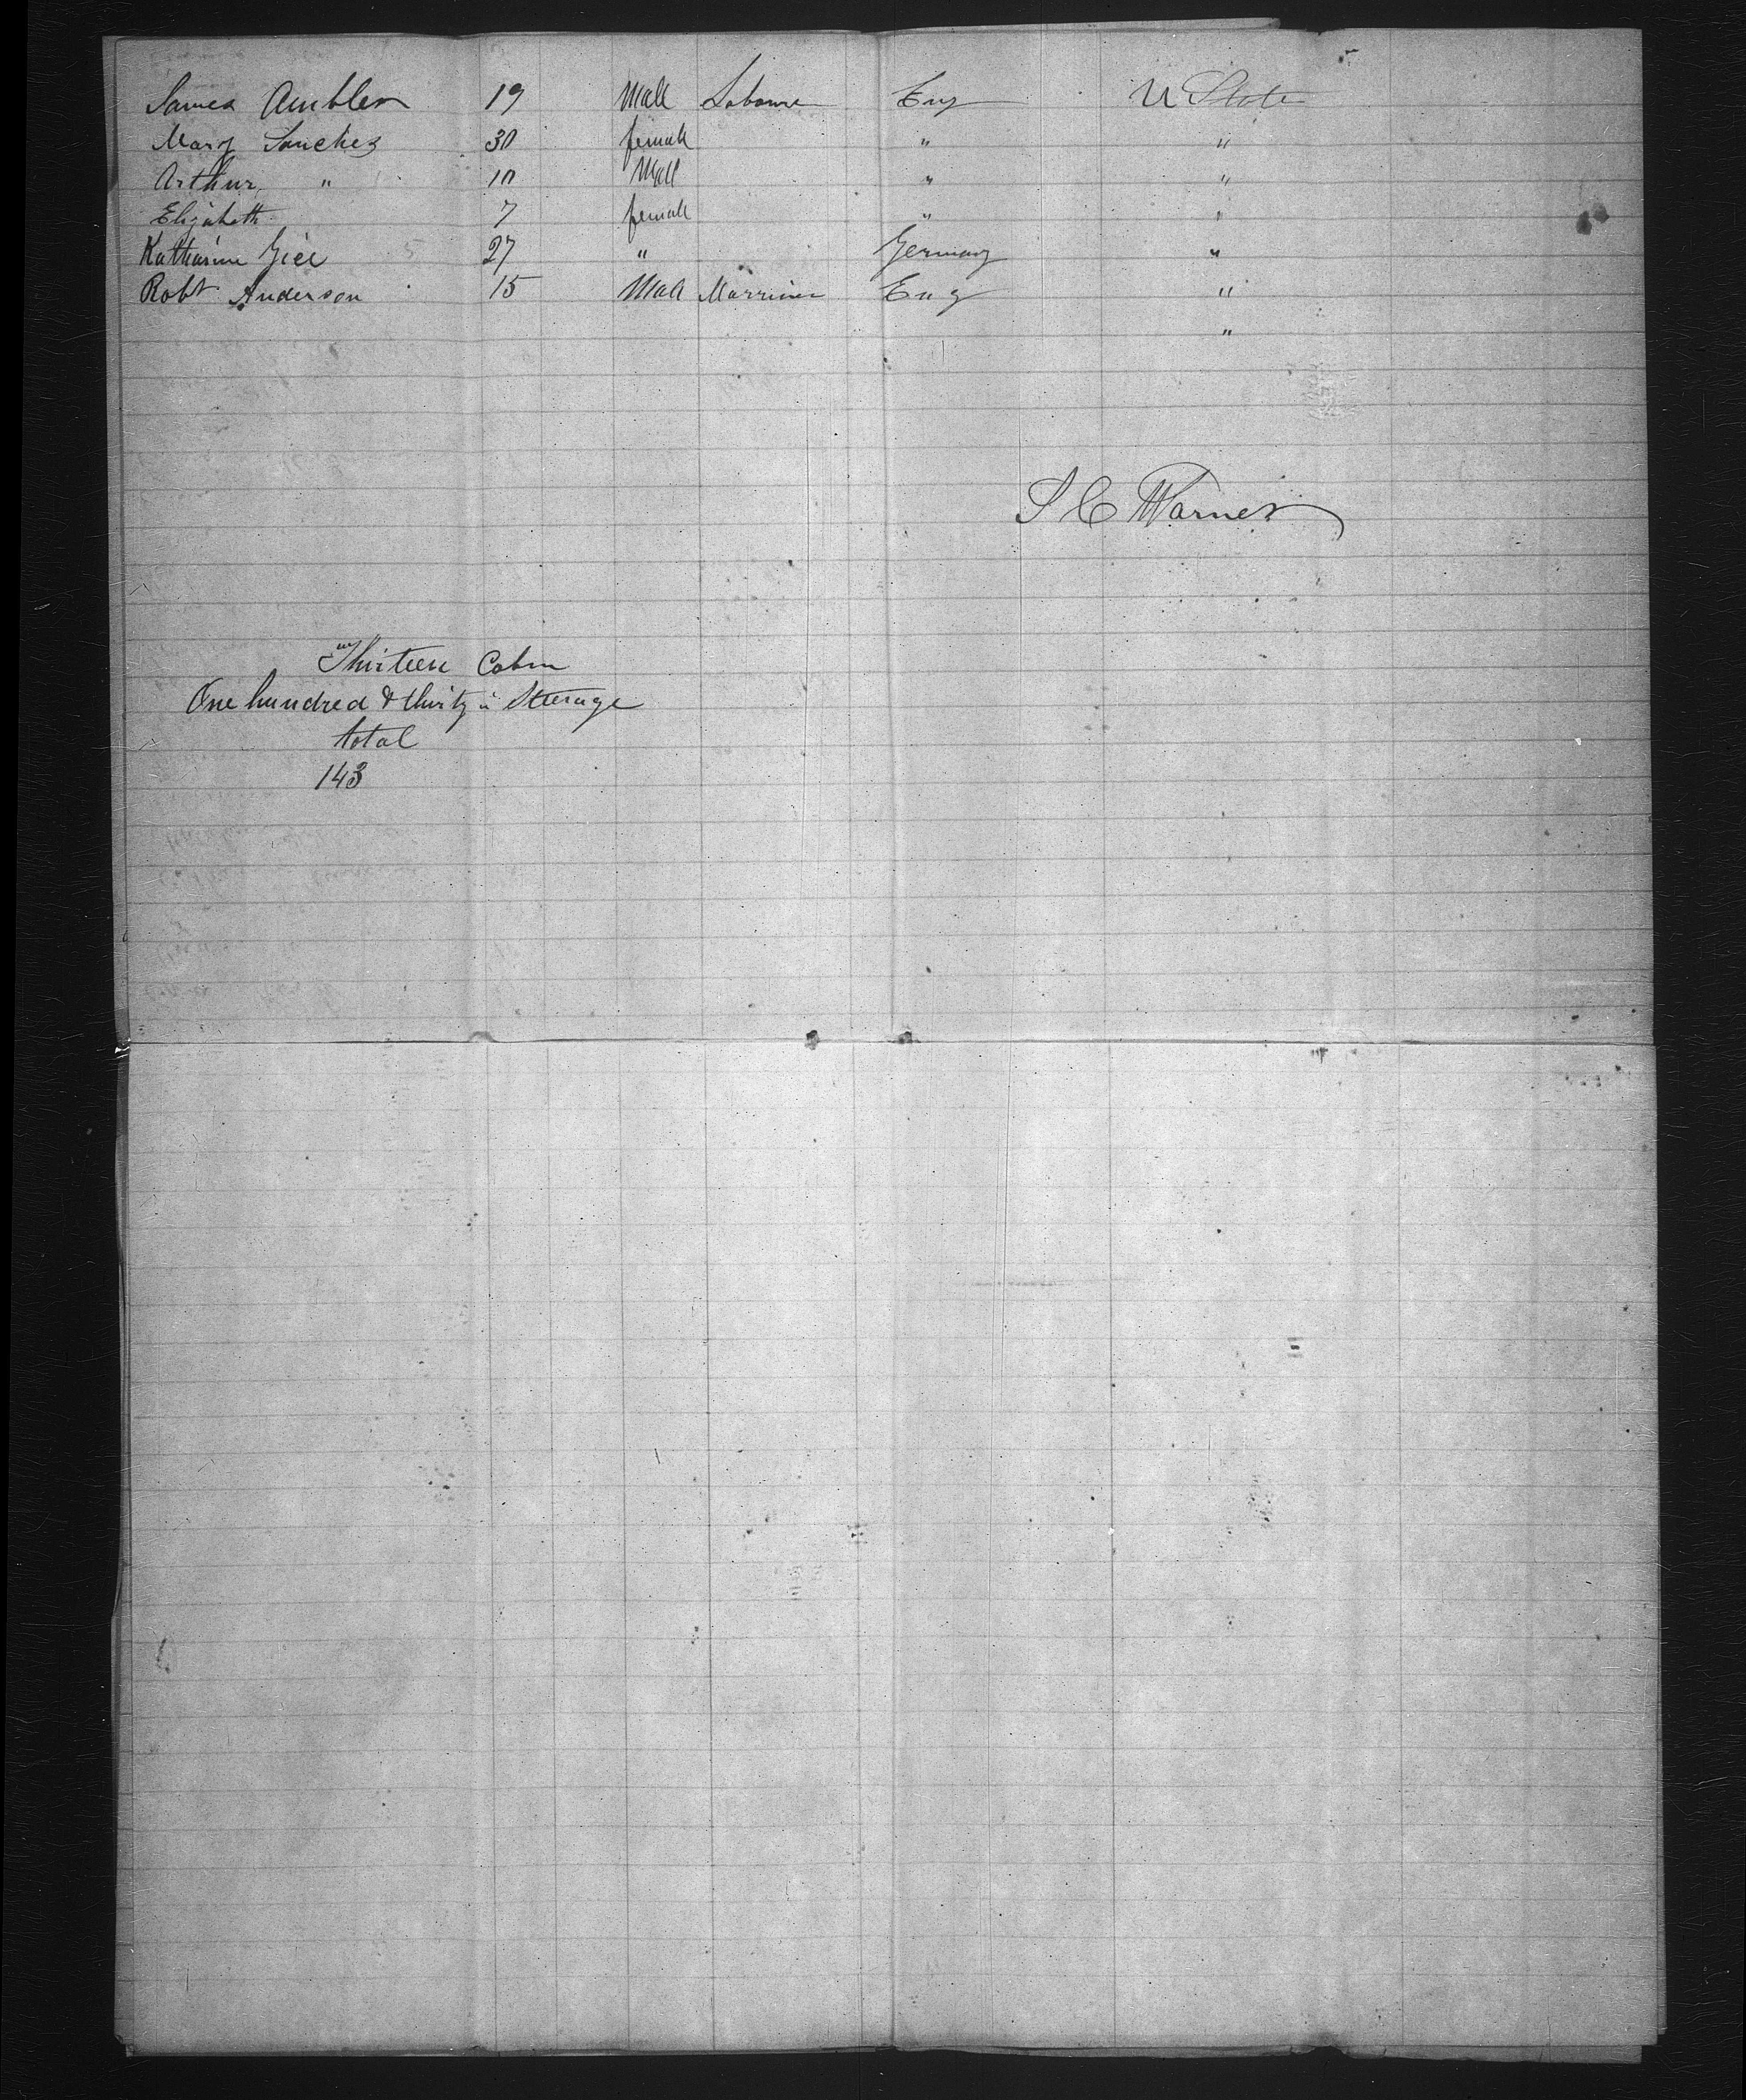 James Ambler 19 Male Laboure Eng U State
Mary Sanchez 30 female " "
Arthur " 10 Male " "
Elizabeth 7 female " "
Katharine 27 " Germany "
Robt Anderson 15 Male Marriner Eng "
"
S C Warner
Thirteen Cabin
One hundred & thirty in Steerage
total
143